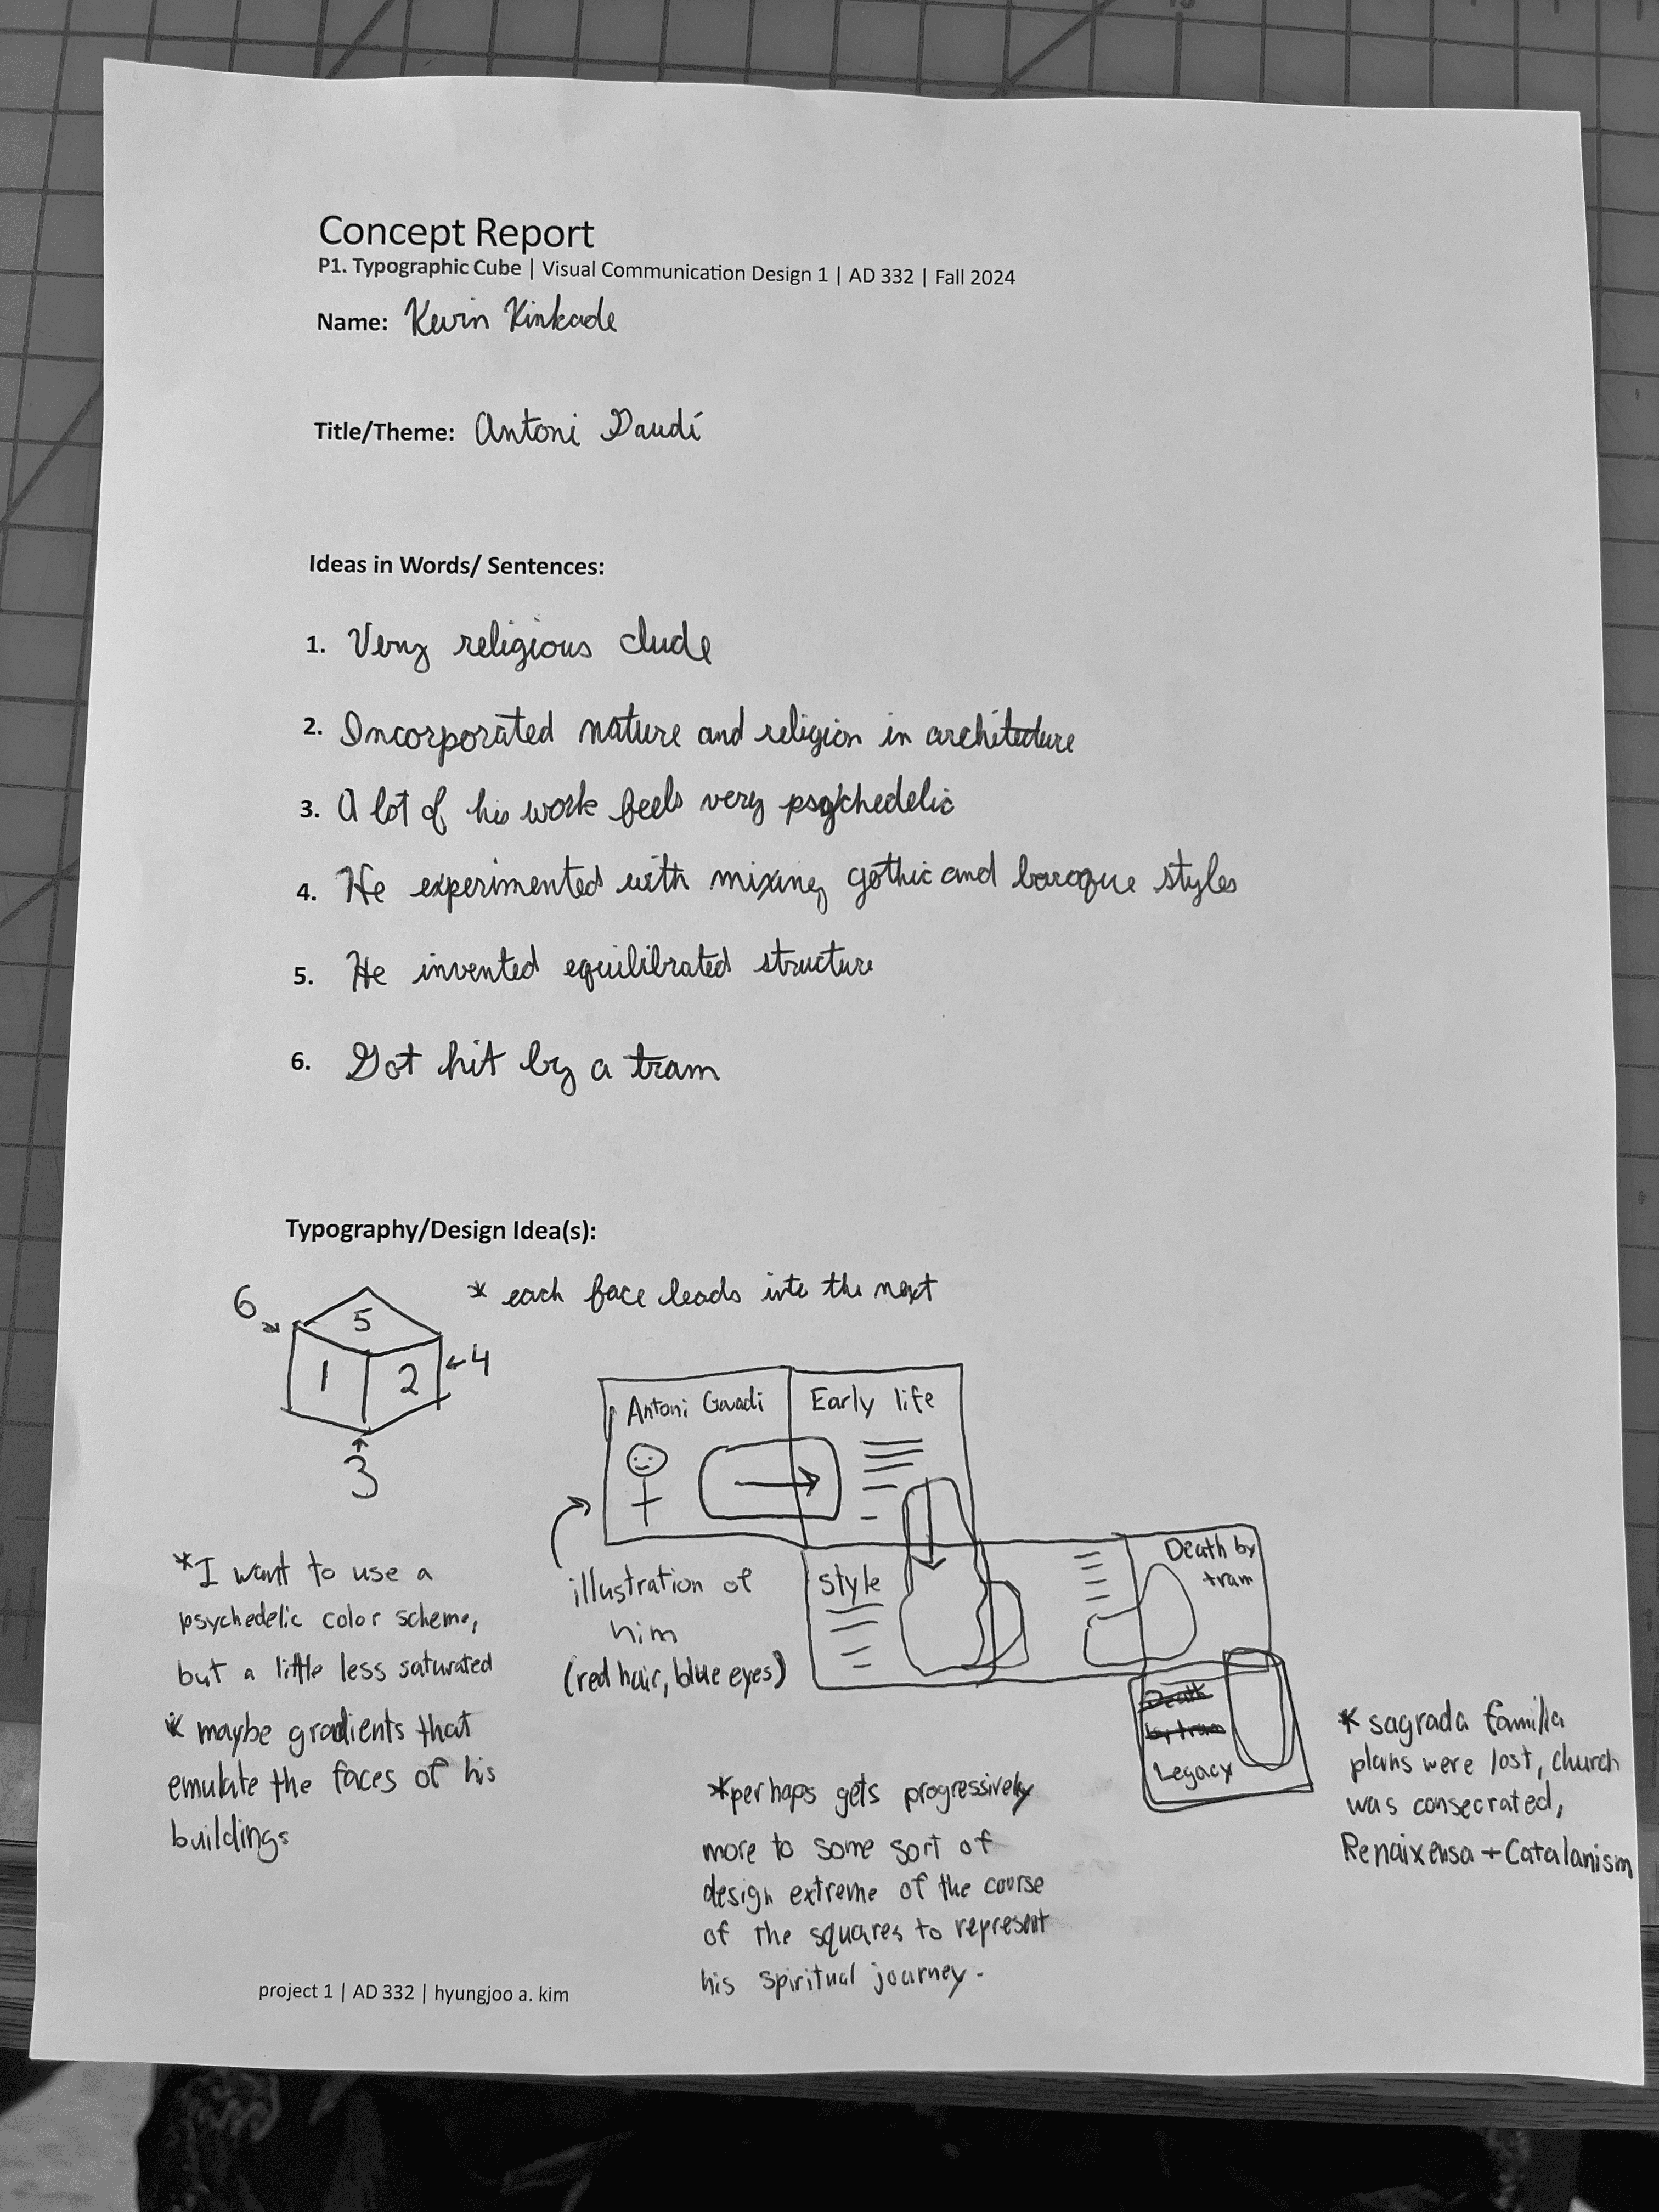 Concept Report
P1. Typographic Cube | Visual Communication Design 1 | AD 332 | Fall 2024
Name: Kevin Kinkade
Title/Theme: Antoni Gaudí
Ideas in Words/ Sentences:
1. Very religious dude
2. Incorporated nature and religion in architecture
3. A lot of his work feels very psychedelic
4. He experimented with mixing gothic and baroque styles
5. He invented equilibrated structure
6. Got hit by a tram
Typography/Design Idea(s):
* each face leads into the next
6
5
1 2
4
3
Antoni Gaudi
Early life
illustration of
him
(red hair, blue eyes)
Style
Death by
tram
Death
by tram
Legacy
*I want to use a
psychedelic color scheme,
but a little less saturated
* maybe gradients that
emulate the faces of his
buildings
*perhaps gets progressively
more to some sort of
design extreme of the course
of the squares to represent
his spiritual journey.
* sagrada familia
plans were lost, church
was consecrated,
Renaixensa + Catalanism
project 1 | AD 332 | hyungjoo a. kim